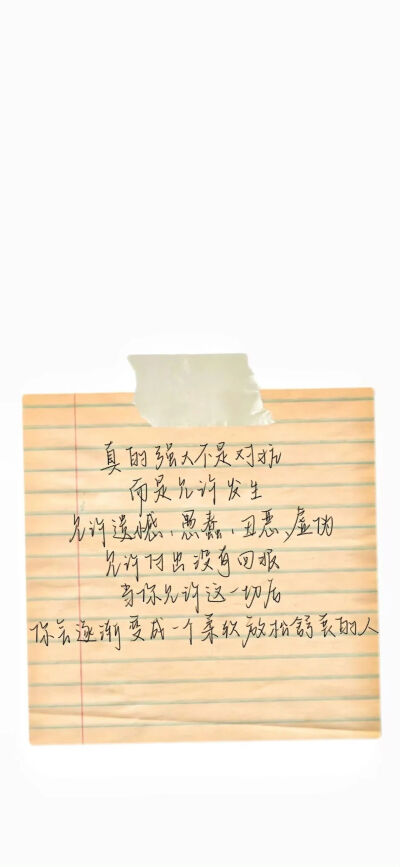 真的强大不是对抗
而是允许发生
允许遗憾、愚蠢、丑恶、虚伪
允许付出没有回报
当你允许这一切后
你会逐渐变成一个柔软放松舒展的人